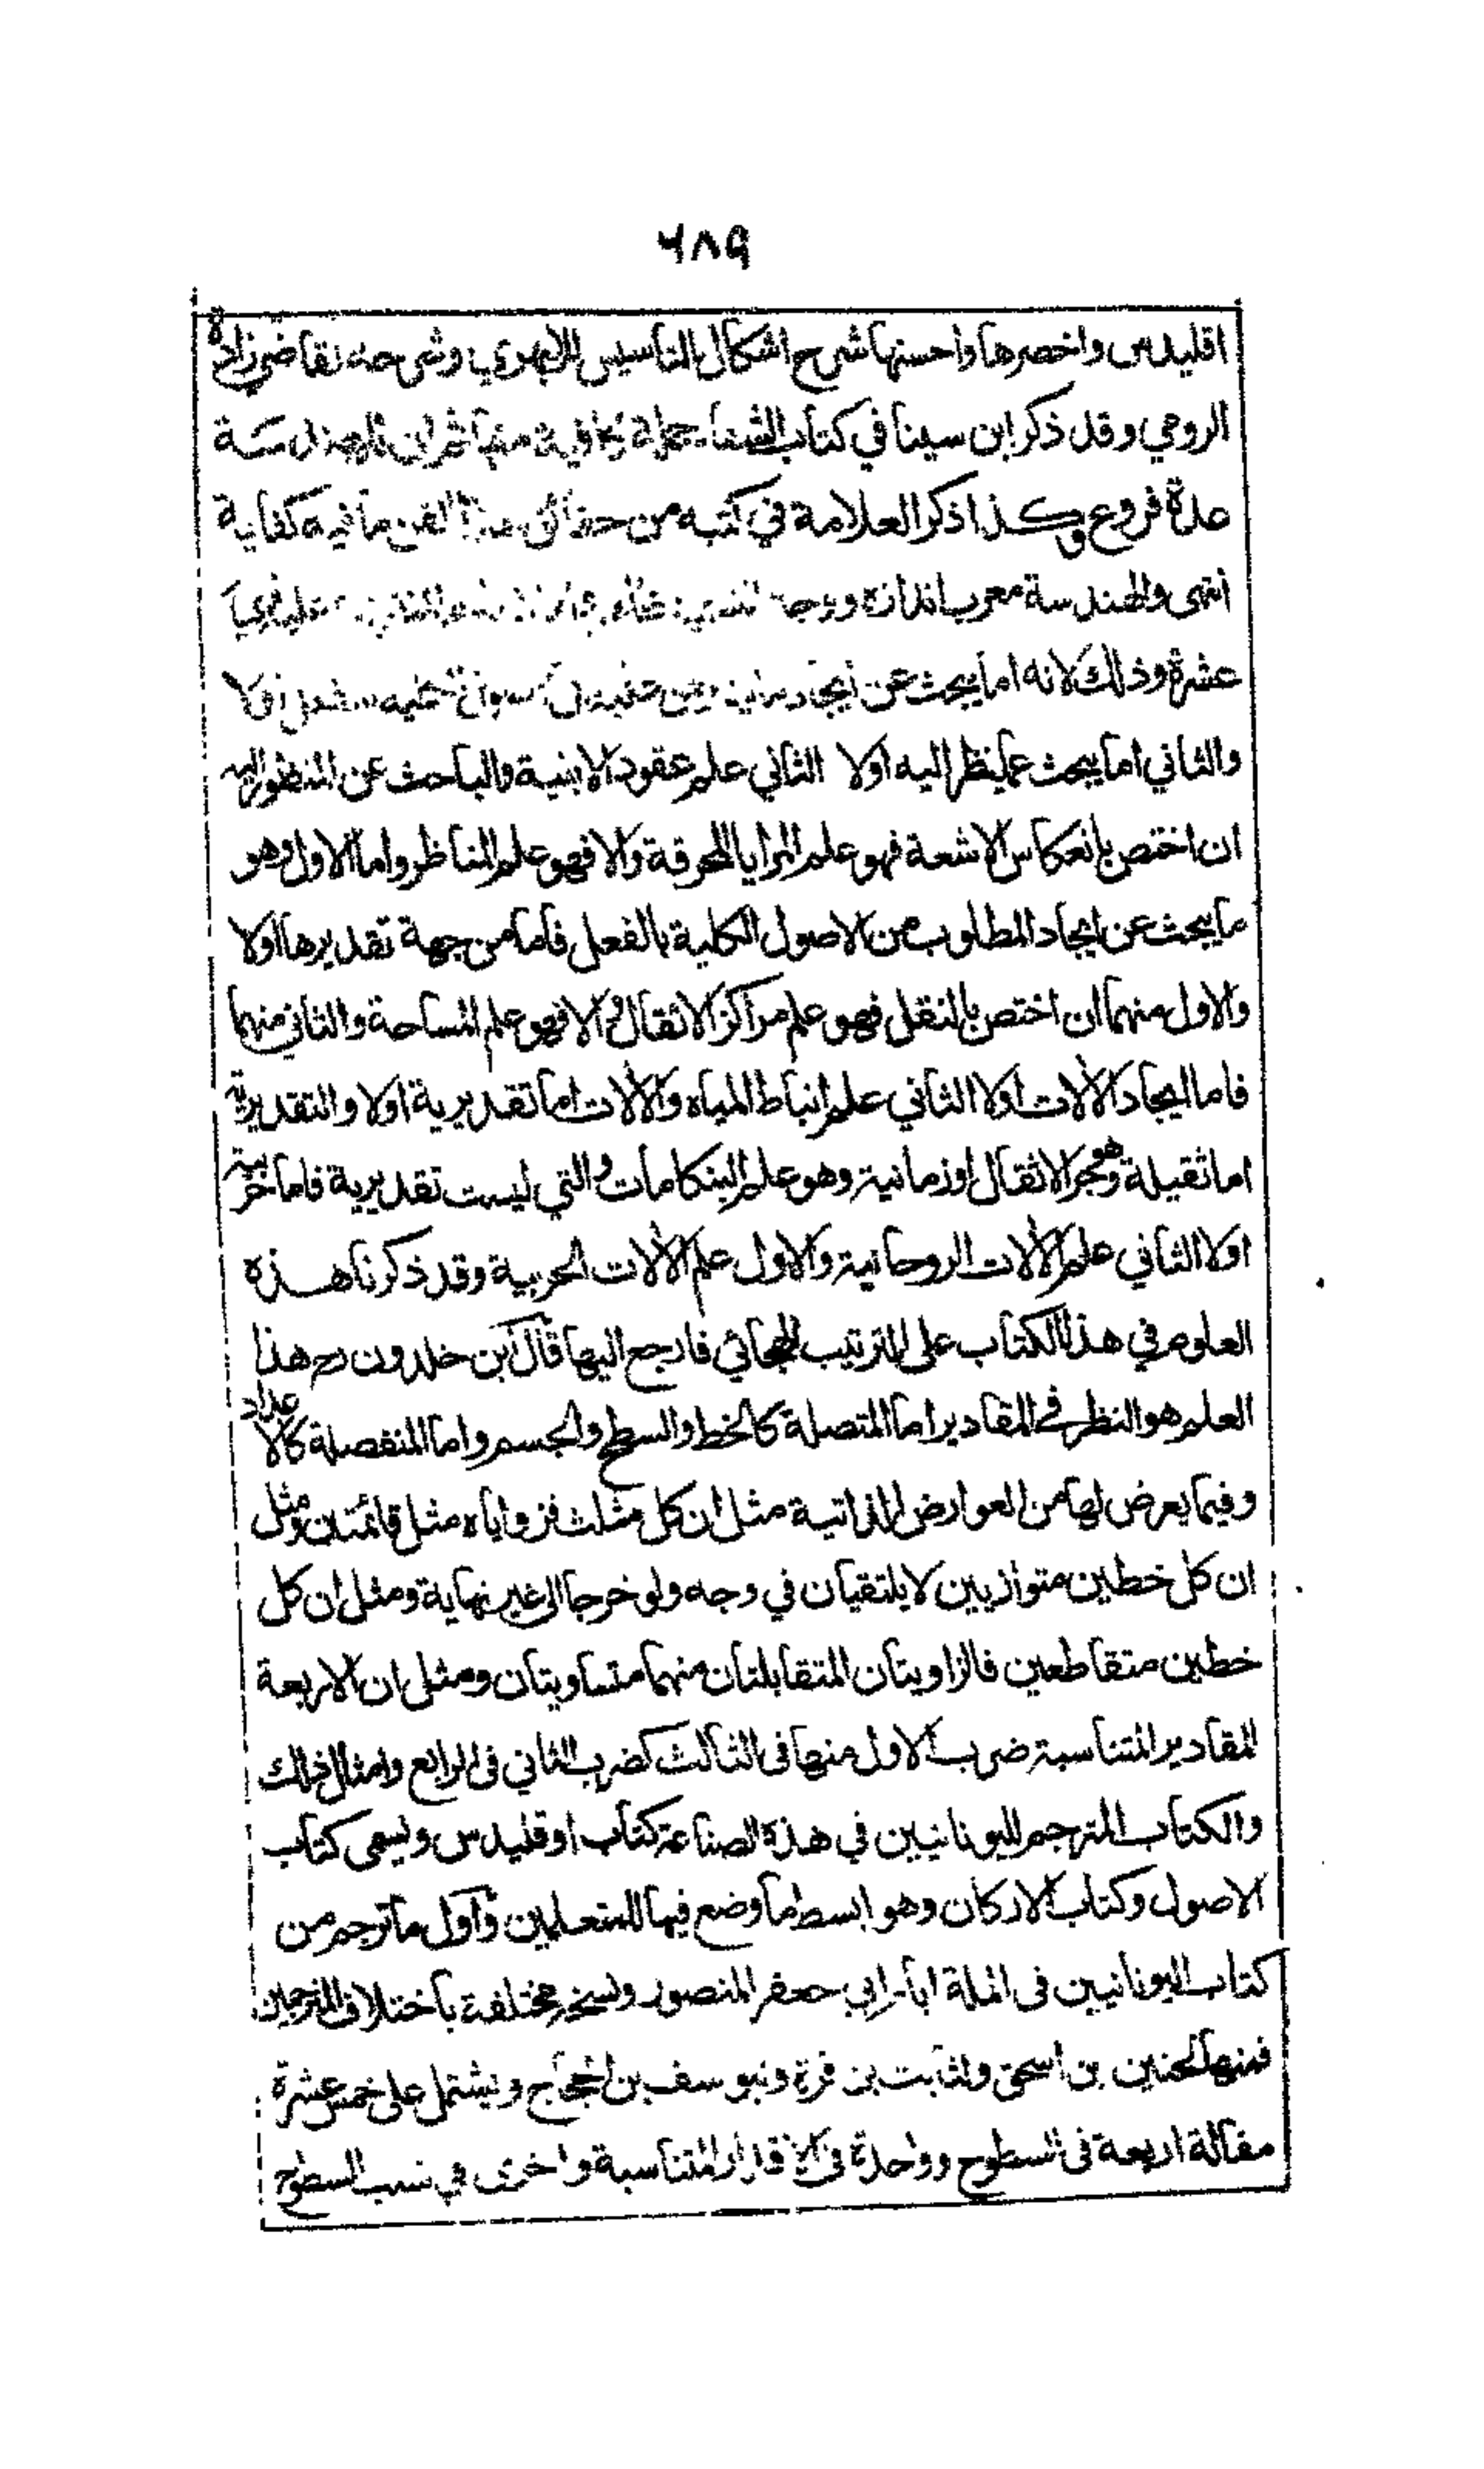 ٦٨٩
اقليدس واخصرها واحسنها شرح اشكال التاسيس للابهري وشرحه لقاضي زاده
الرومي وقد ذكر ابن سينا في كتاب الشفا جملة كافية منها ثم ان للهندسة
عدة فروع وكذا ذكر العلامة في كتبه من حقائق هذا الفن ما فيه كفاية
انتهى والهندسة معرب اندازه ووجه
عشرة وذلك لانه اما يبحث عن ايجاد اولا
والثاني اما يبحث عما ينظر اليه اولا الثاني علم عقود الابنية والباحث عن المنظور اليه
ان اختص بانعكاس الاشعة فهو علم المرايا المحرقة والا فهو علم المناظر واما الاول وهو
ما يبحث عن ايجاد المطلوب من الاصول الكلية بالفعل فاما من جهة تقديرها اولا
والاول منهما ان اختص بالنقل فهو علم مراكز الاثقال والا فهو علم المساحة والثاني منهما
فاما ايجاد الآلات اولا الثاني علم انباط المياه والآلات اما تقديرية اولا والتقديرية
اما ثقيلة وهو جر الاثقال او زمانية وهو علم البنكامات والتي ليست تقديرية فاما حربية
اولا الثاني علم الآلات الروحانية والاول علم الآلات الحربية وقد ذكرنا هذه
العلوم في هذا الكتاب على الترتيب الهجائي فارجع اليها قال ابن خلدون رح هذا
العلم هو النظر في المقادير اما المتصلة كالخط والسطح والجسم واما المنفصلة كالاعداد
وفيما يعرض لها من العوارض الذاتية مثل ان كل مثلث فزواياه مثل قائمتين ومثل
ان كل خطين متوازيين لا يلتقيان في وجه ولو خرجا الى غير نهاية ومثل ان كل
خطين متقاطعين فالزاويتان المتقابلتان منهما متساويتان ومثل ان الاربعة
المقادير المتناسبة ضرب الاول منها في الثالث كضرب الثاني في الرابع وامثال ذلك
والكتاب المترجم لليونانيين في هذة الصناعة كتاب اوقليدس ويسمى كتاب
الاصول وكتاب الاركان وهو ابسط ما وضع فيها للمتعلمين واول ما ترجم من
كتاب اليونانيين في الملة ايام ابي جعفر المنصور ونسخه مختلفة باختلاف المترجمين
فمنها لحنين بن اسحق ولثابت بن قرة وليوسف بن الحجاج ويشتمل على خمس عشرة
مقالة اربعة في السطوح وواحدة في الاقدار المتناسبة واخرى في نسب السطوح